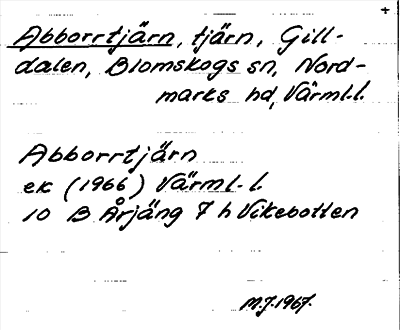 Abborrtjärn, tjärn, Gill-
dalen, Blomskogs sn, Nord-
marks hd, Värml.l.
Abborrtjärn
ek (1966) Värml.l.
10 B Årjäng 7 h Vikebotten
M.J.1967.